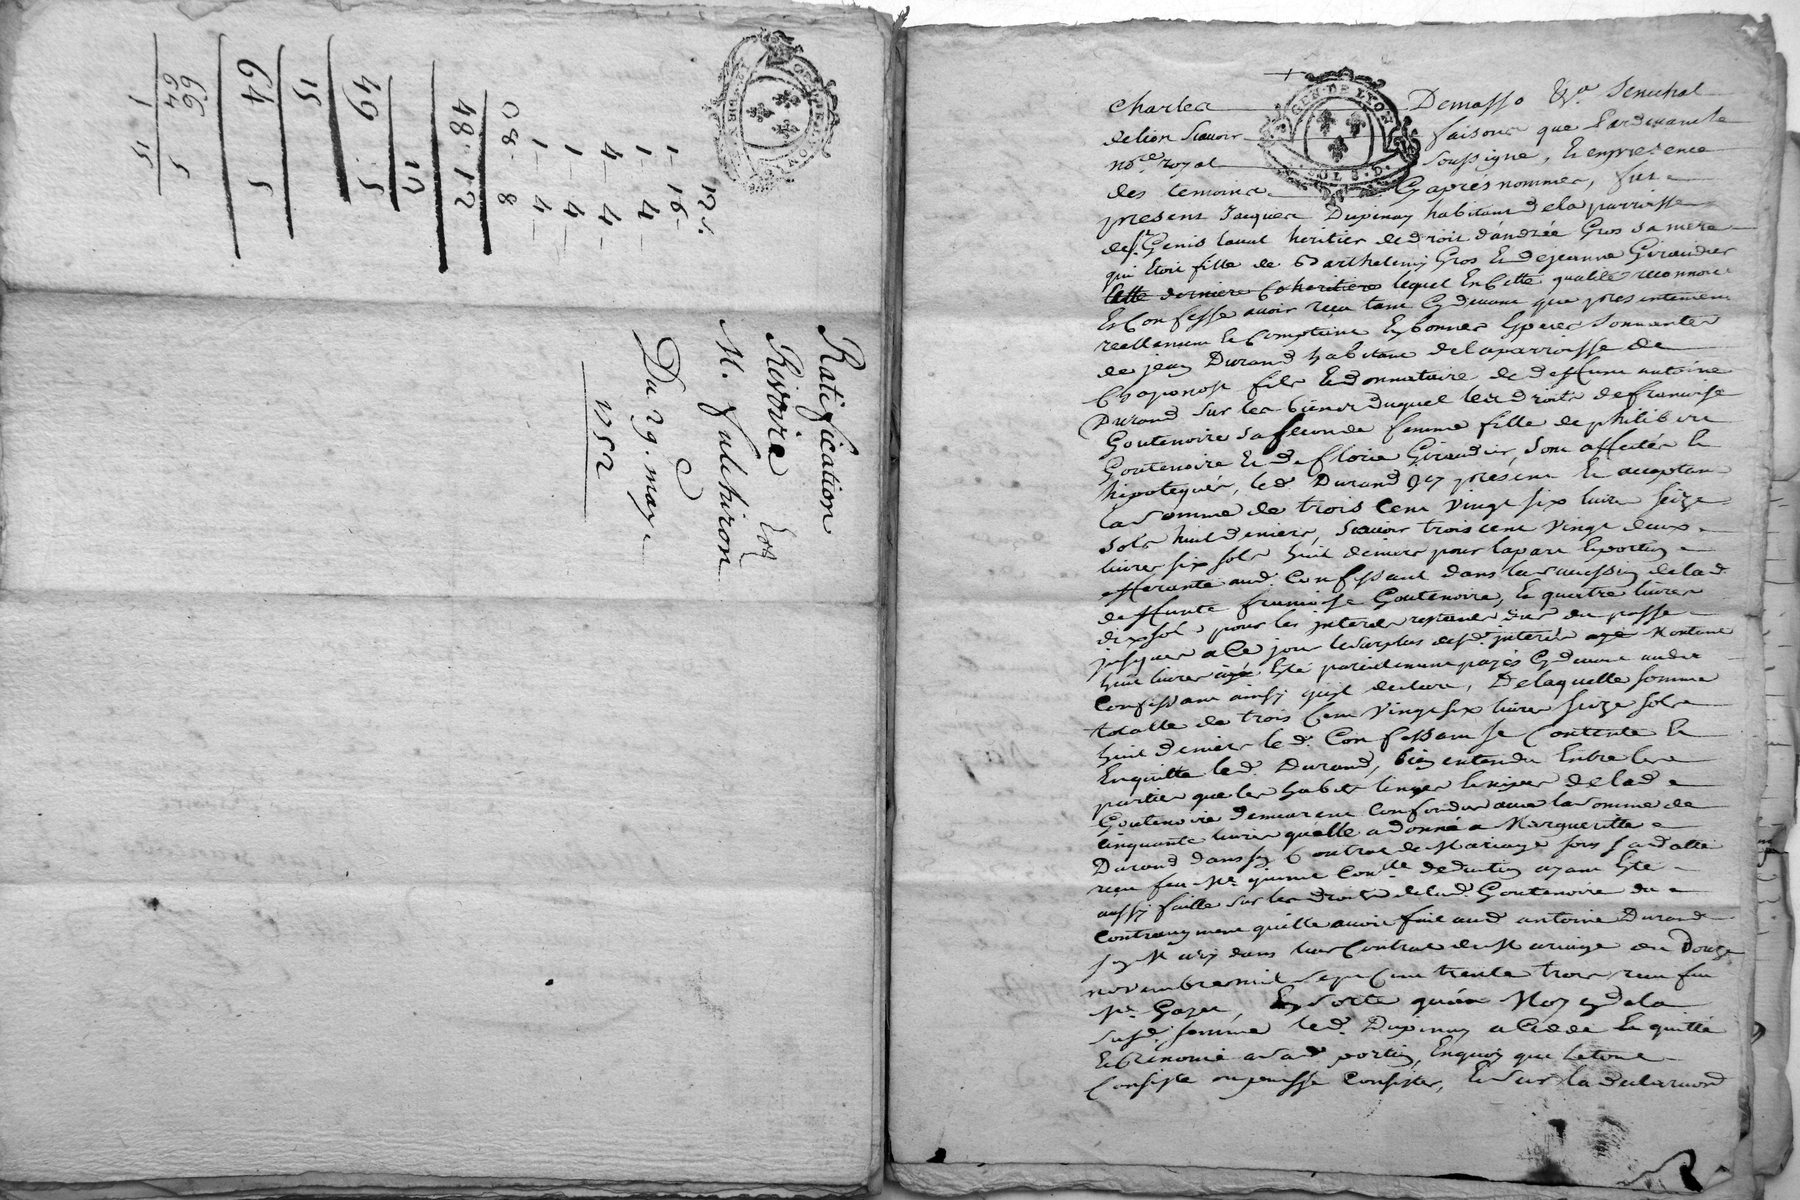 12 s.
1 - 16 -
1 - 4 -
4 - 4 -
1 - 4 -
1 - 4 -
08 - 8
48 - 12
12
49 . 5
15
64 5
66 5
64
1 15
Ratification
Rivoire Et
M. Fulchiron
Du 29. may
1752
GEN. DE LYON
SOLS. D.
Charles Demasso &a. Senechal
de lion Scavoir faisons que Pardevant le
nore. royal soussigné, Et en presence
des temoins Cy après nommés, fut
present Jacques Dupinay habitant de la parroisse
de st. Genis laval heritier de droit d'andrée Gros sa mere
qui Etoit fille de Barthelemy Gros Et de jeanne Giraudier
cette derniere Coheritiere lequel En Cette qualité reconnoit
Et Confesse avoir reçu tant Cy devant que presentement
reellement Et Comptant En bonnes Especes Sonnantes
de jean Durand habitant de la parroisse de
Chaponost fils Et donnataire de deffunt antoine
Durand sur les biens duquel les droits de françoise
Goutenoire sa seconde femme fille de philibert
Goutenoire Et de florie Giraudier, sont affectés Et
hipotequés, led. Durand icy présent Et acceptant
la somme de trois Cent vingt six livres seize
sols huit deniers, scavoir trois cent vingt deux
livres six sols huit deniers pour la part Et portion
afferante aud. Confessant dans la succession de lad.
deffunte françoise Goutenoire, Et quatre livres
dix sols pour les interets restants dus du passé
jusques a Ce jour le surplus desd. interets montant
huit livres ayé Eté pareillement payés Cy devant aud.
Confessant ainsy qu'il declare, De laquelle somme
totalle de trois Cent vingt six livres seize sols
huit deniers led. Confessant se Contente Et
En quitte led. Durand, bien entendu Entre les
parties que les habits linges de lad.
Goutenoire demeurent confondus avec la somme de
cinquante livres qu'elle a donné a Margueritte
Durand dans son Contrat de Mariage sous sa datte
reçu feu Me. deduction ayant Eté
aussy faitte sur les droits de lad. Goutenoire du
qu'elle avoit fait aud antoine Durand
son Mary dans leur Contrat de Mariage du Douze
novembre mil sept cent trente trois reçu feu
Me. Gayet, En sorte qu'au Moyen de la
susd. somme led. Dupinay a Cedé Et quitté
Et Renoncé a sad. portion, En quoy que le tout
Consiste ou puisse Consister, Et sur la